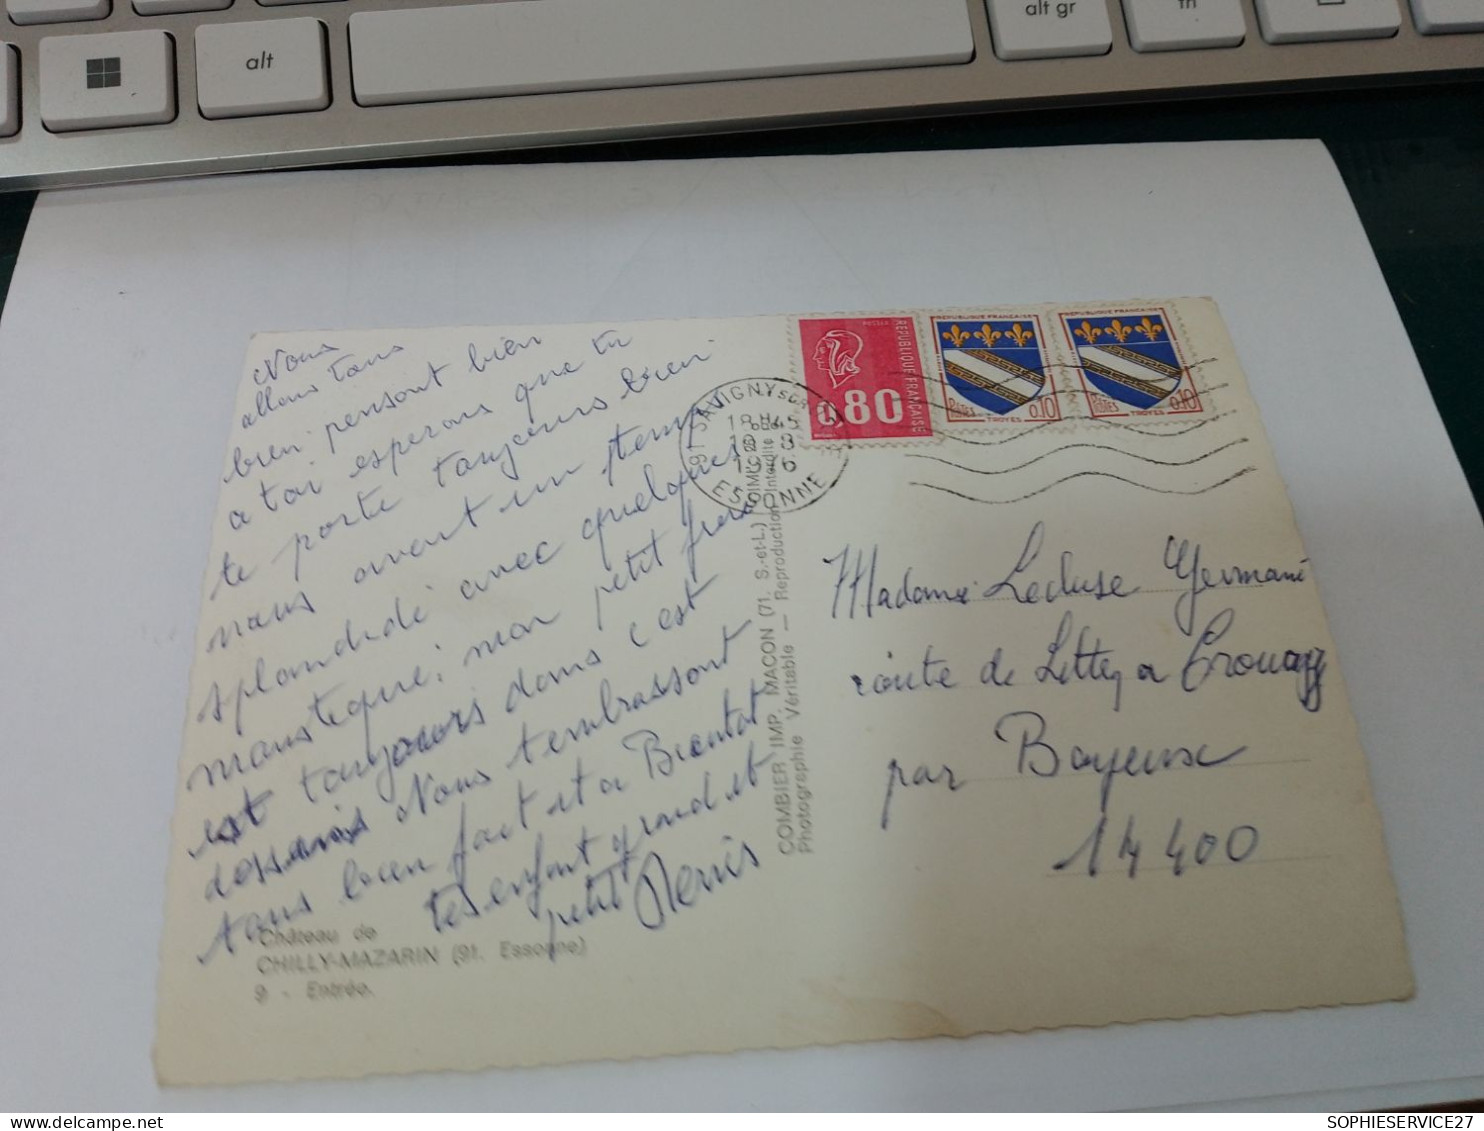 alt
alt gr
fn
Nous
allons tous
bien pensont bien
a toi esperons que tu
te porte toujours bien
nous avont un temp
splandide avec quelques
moustique. mon petit frere
est toujours dans c'est
dossiers Nous t'embrassont
tous bien fort et a Bientot
tes enfant grand et
petit Denis
Château de
CHILLY-MAZARIN (91. Essonne)
9 - Entrée.
COMBIER IMP. MACON (71. S.-et-L.)
Photographie Véritable — Reproduction Interdite
91 SAVIGNY SUR
18H45
ESSONNE
POSTES
REPUBLIQUE FRANÇAISE
0.80
REPUBLIQUE FRANÇAISE
POSTES
0,10
TROYES
REPUBLIQUE FRANÇAISE
POSTES
0,10
TROYES
Madame Lecluse Germaine
route de Littry a Crouay
par Bayeux
14400
SOPHIESERVICE27